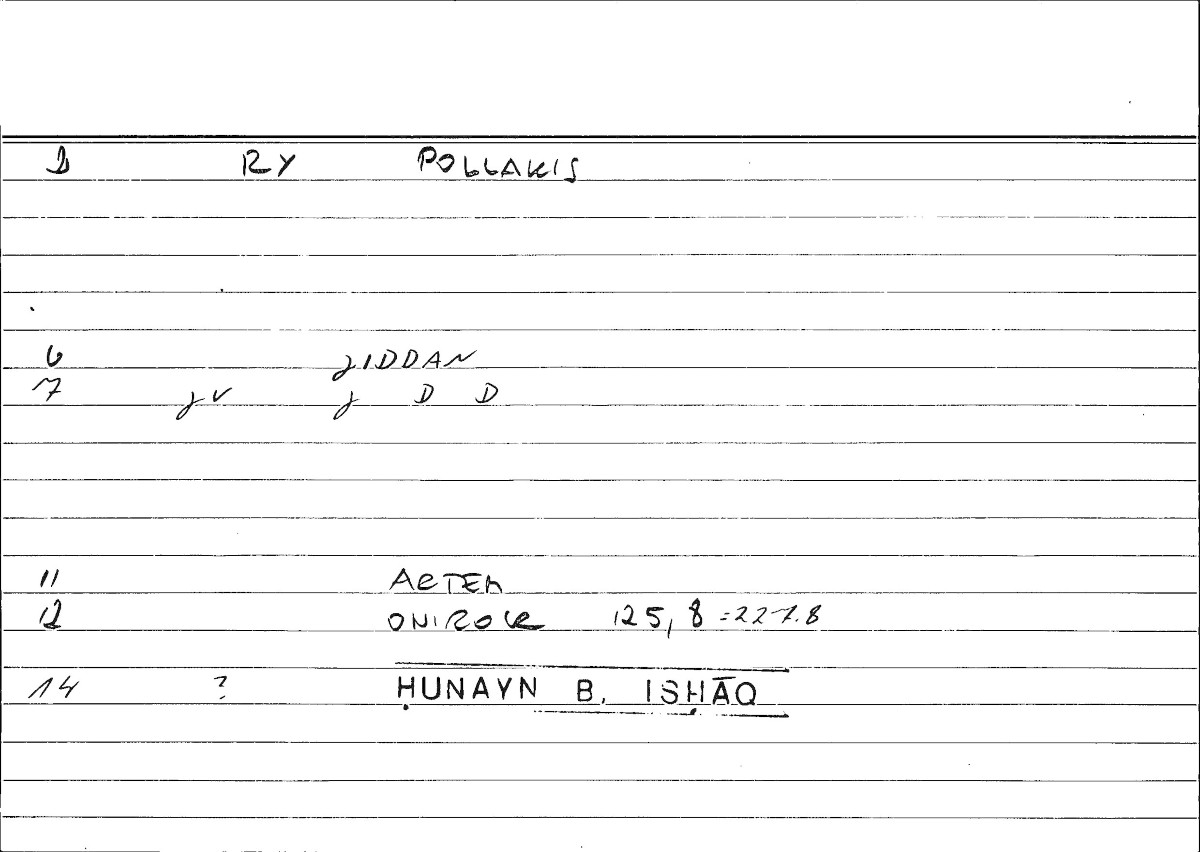 1 RY POLLAKIS
6 JIDDAN
7 JV J D D
11 ARTEM
12 ONIROCR 125, 8 =227.8
14 ? ḤUNAYN B. ISḤĀQ